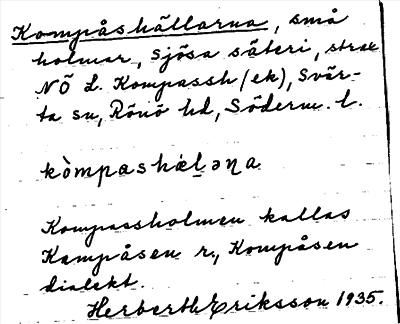 Kompåshällarna, små
holmar, Sjösa säteri, strax
NÖ L. Kompassh/ek), Svär-
ta sn, Rönö hd, Söderm. l.
kòmpashæḷəṇa
Kompassholmen kallas
Kampåsen r., Kompåsen
dialekt.
Herberth Eriksson 1935.